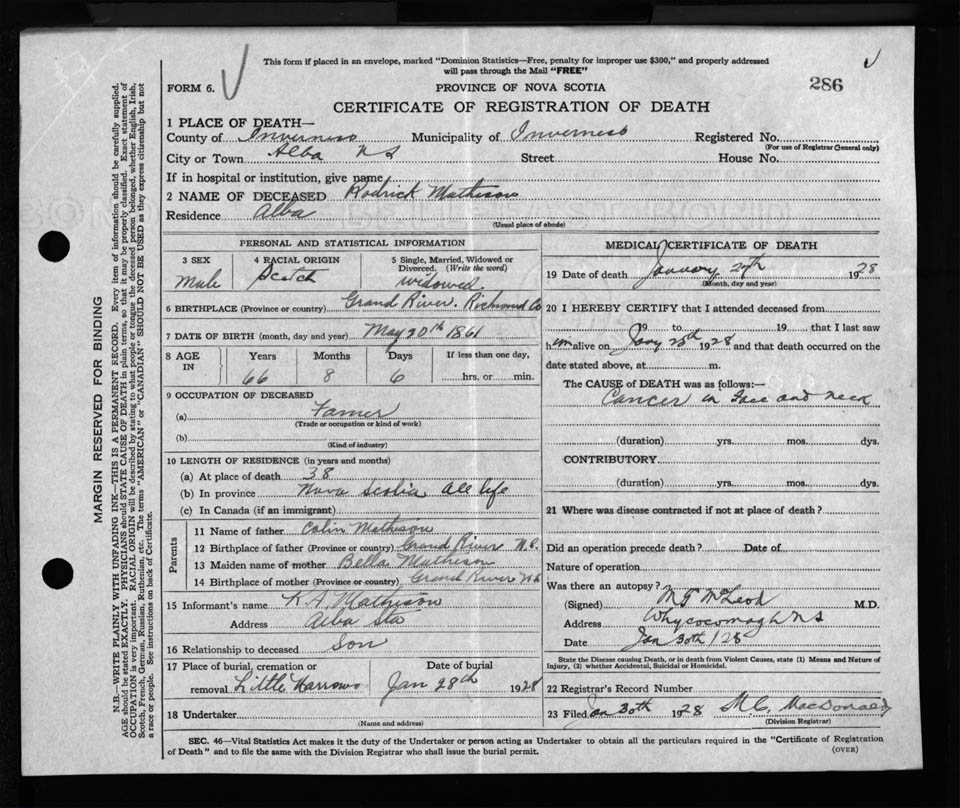 This form if placed in an envelope, marked "Dominion Statistics—Free, penalty for improper use $300," and properly addressed
will pass through the Mail "FREE"
FORM 6.
PROVINCE OF NOVA SCOTIA
286
CERTIFICATE OF REGISTRATION OF DEATH
1 PLACE OF DEATH—
County of Inverness Municipality of Inverness Registered No.
(For use of Registrar General only)
City or Town Alba N S Street House No.
If in hospital or institution, give name
2 NAME OF DECEASED Rodrick Matheson
Residence Alba
(Usual place of abode)
PERSONAL AND STATISTICAL INFORMATION
3 SEX 4 RACIAL ORIGIN 5 Single, Married, Widowed or
Divorced. (Write the word)
Male Scotch widowed.
6 BIRTHPLACE (Province or country) Grand River. Richmond Co
7 DATE OF BIRTH (month, day and year) May 20th 1861
8 AGE
IN
Years Months Days If less than one day,
66 8 6 hrs. or min.
9 OCCUPATION OF DECEASED
(a) Famer
(Trade or occupation or kind of work)
(b)
(Kind of industry)
10 LENGTH OF RESIDENCE (in years and months)
(a) At place of death 38
(b) In province Nova Scotia All life
(c) In Canada (if an immigrant)
Parents
11 Name of father Colin Mathison
12 Birthplace of father (Province or country) Grand River N.S.
13 Maiden name of mother Bella Matheson
14 Birthplace of mother (Province or country) Grand River N S
15 Informant's name K. A. Mathison
Address Alba Sta
16 Relationship to deceased Son
17 Place of burial, cremation or Date of burial
removal Little Narrows Jan 28th 1928
18 Undertaker
(Name and address)
MEDICAL CERTIFICATE OF DEATH
19 Date of death January 27th 1928
(Month, day and year)
20 I HEREBY CERTIFY that I attended deceased from
19 to 19 that I last saw
him alive on Jany 25th 1928 and that death occurred on the
date stated above, at m.
The CAUSE OF DEATH was as follows:—
Cancer in Face and neck
(duration) yrs. mos. dys.
CONTRIBUTORY
(duration) yrs. mos. dys.
21 Where was disease contracted if not at place of death?
Did an operation precede death? Date of
Nature of operation
Was there an autopsy?
(Signed) M T McLeod M.D.
Address Whycocomagh N S
Date Jan 30th / 28
State the Disease causing Death, or in death from Violent Causes, state (1) Means and Nature of
Injury, (2) whether Accidental, Suicidal or Homicidal.
22 Registrar's Record Number
23 Filed Jan 30th 1928 M. C. MacDonald
(Division Registrar)
SEC. 46—Vital Statistics Act makes it the duty of the Undertaker or person acting as Undertaker to obtain all the particulars required in the "Certificate of Registration
of Death" and to file the same with the Division Registrar who shall issue the burial permit.
(OVER)
MARGIN RESERVED FOR BINDING
N.B.—WRITE PLAINLY WITH UNFADING INK—THIS IS A PERMANENT RECORD. Every item of information should be carefully supplied.
AGE should be stated EXACTLY. PHYSICIANS should STATE CAUSE OF DEATH in plain terms, so that it may be properly classified. Exact statement of
OCCUPATION is very important. RACIAL ORIGIN will be described by stating to what people or tongue the deceased person belonged, whether English, Irish,
Scotch, French, German, Russian, Ruthenian, etc. The terms "AMERICAN" or "CANADIAN" SHOULD NOT BE USED as they express citizenship but not
a race or people. See instructions on back of Certificate.